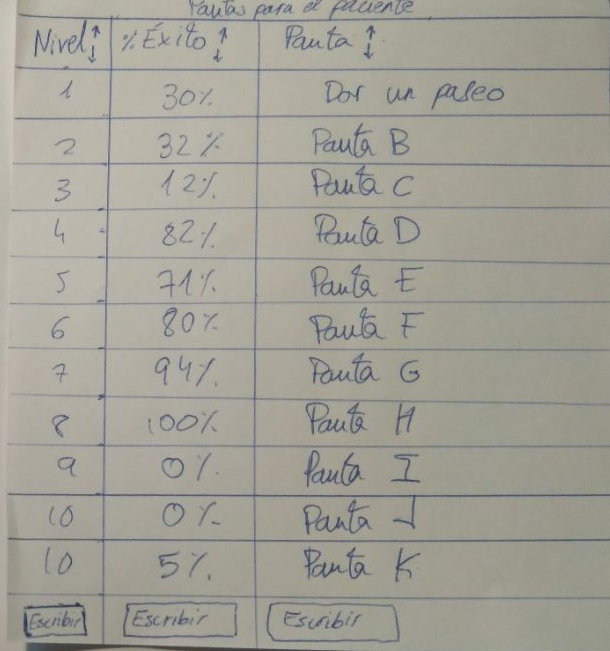 Pautas para el paciente
Nivel ↑↓ % Éxito ↑↓ Pauta ↑↓
1 30% Dar un paseo
2 32% Pauta B
3 12% Pauta C
4 82% Pauta D
5 71% Pauta E
6 80% Pauta F
7 94% Pauta G
8 100% Pauta H
9 0% Pauta I
10 0% Pauta J
10 5% Pauta K
Escribir Escribir Escribir